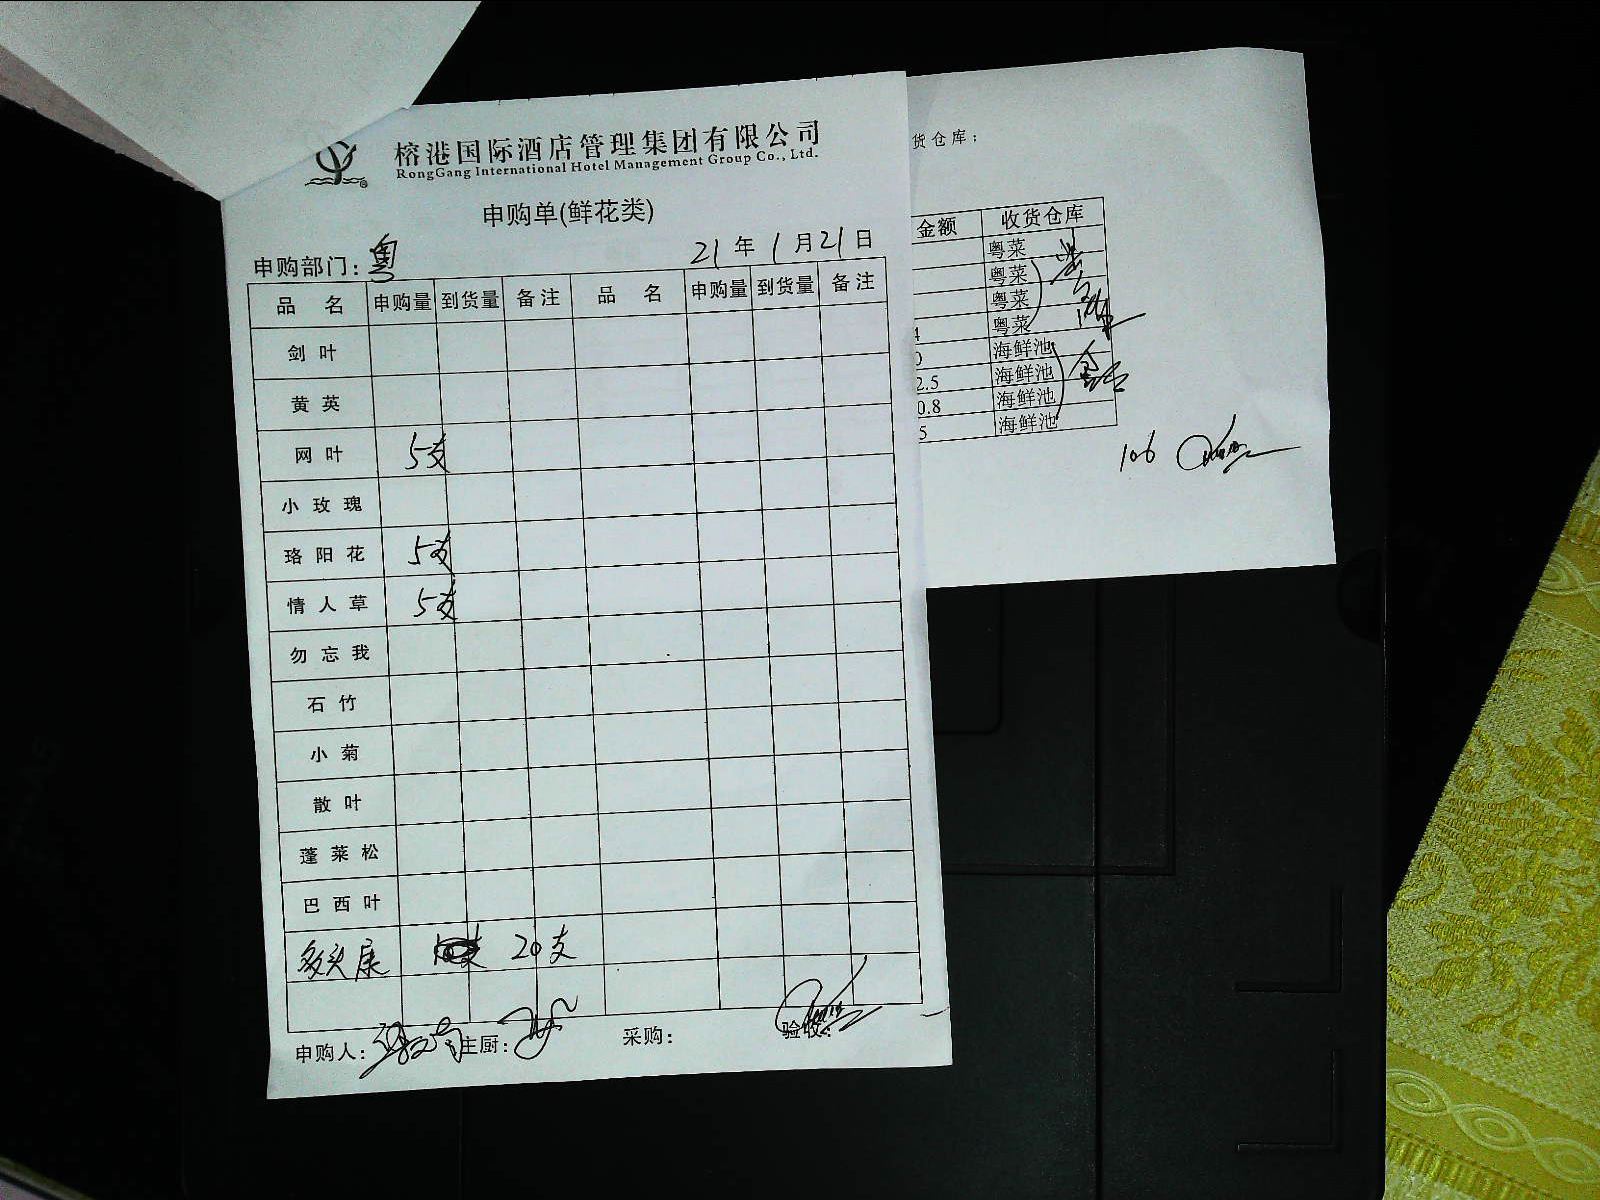 榕港国际酒店管理集团有限公司
RongGang International Hotel Management Group Co., Ltd.
申购单(鲜花类)
申购部门：粤 21年1月21日
品名 申购量 到货量 备注 品名 申购量 到货量 备注
剑叶
黄英
网叶 5支
小玫瑰
珞阳花 5支
情人草 5支
勿忘我
石竹
小菊
散叶
蓬莱松
巴西叶
多头康 20支
申购人： 主厨： 采购： 验收：
货仓库：
金额 收货仓库
粤菜
粤菜
粤菜
4 粤菜
0 海鲜池
2.5 海鲜池
0.8 海鲜池
5 海鲜池
106